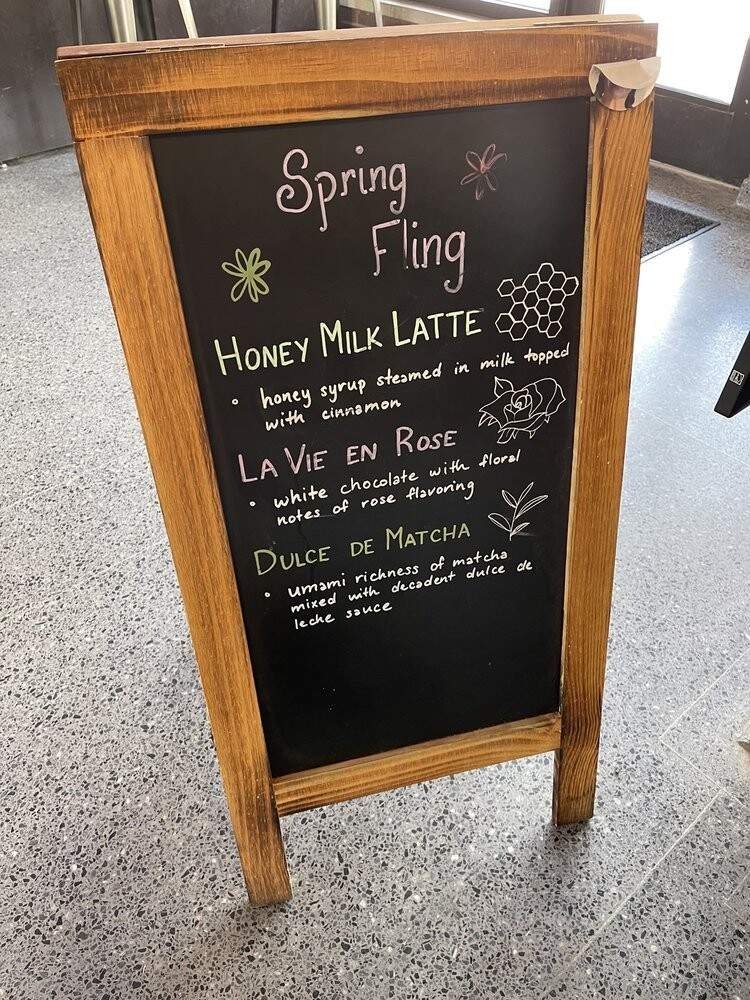 Spring
Fling
HONEY MILK LATTE
• honey syrup steamed in milk topped
with cinnamon
LA VIE EN ROSE
• white chocolate with floral
notes of rose flavoring
DULCE DE MATCHA
• umami richness of matcha
mixed with decadent dulce de
leche sauce